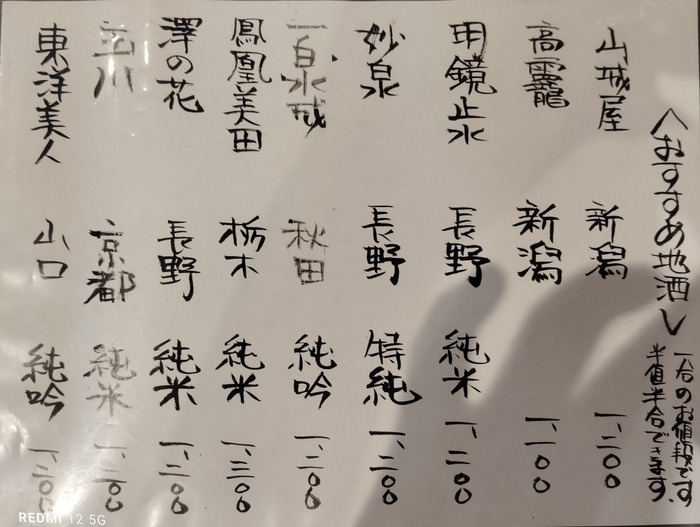 〈おすすめ地酒〉
一合のお値段です。
半値半合できます。
山城屋 新潟 一、二〇〇
新潟 一、一〇〇
明鏡止水 長野 純米 一、二〇〇
妙泉 長野 特純 一、二〇〇
一白水成 秋田 純吟 一、二〇〇
鳳凰美田 栃木 純米 一、三〇〇
澤の花 長野 純米 一、二〇〇
玉川 京都 純米 一、二〇〇
東洋美人 山口 純吟 一、三〇〇
REDMI 12 5G